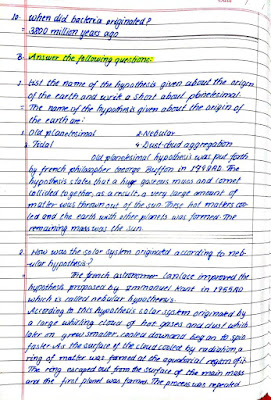 10. when did bacteria originated?
= 3800 million years ago
B. Answer the following questions:
1. List the name of the hypothesis given about the origin
of the earth and write a short about planetesimal.
= The name of the hypothesis given about the origin of
the earth are:
1. Old planetesimal 2. Nebular
3. Tidal 4. Dust-clud aggregation
Old planetesimal hypothesis was put forth
by french philosopher George Buffon in 1749AD. The
hypothesis states that a huge gaseous mass and comet
collided together, as a result, a very large amount of
matter was thrown out of the sun. These hot matters coo-
led and the earth with other planets was formed. The
remaining mass was the sun.
2. How was the solar system originated according to neb-
ular hypothesis?
= The french astronomer Lanlace improved the
hypothesis proposed by Emmanuel Kant in 1755AD
which is called nebular hypothesis.
According to this hypothesis solar system originated by
a large whirling cloud of hot gases and dust which
later on grew smaller, cooled down and began to spin
faster. As the surface of the cloud cooled by radiation, a
ring of matter was formed at the equatorial region of it.
The ring escaped out from the surface of the main mass
and the first planet was formed. The process was repeated